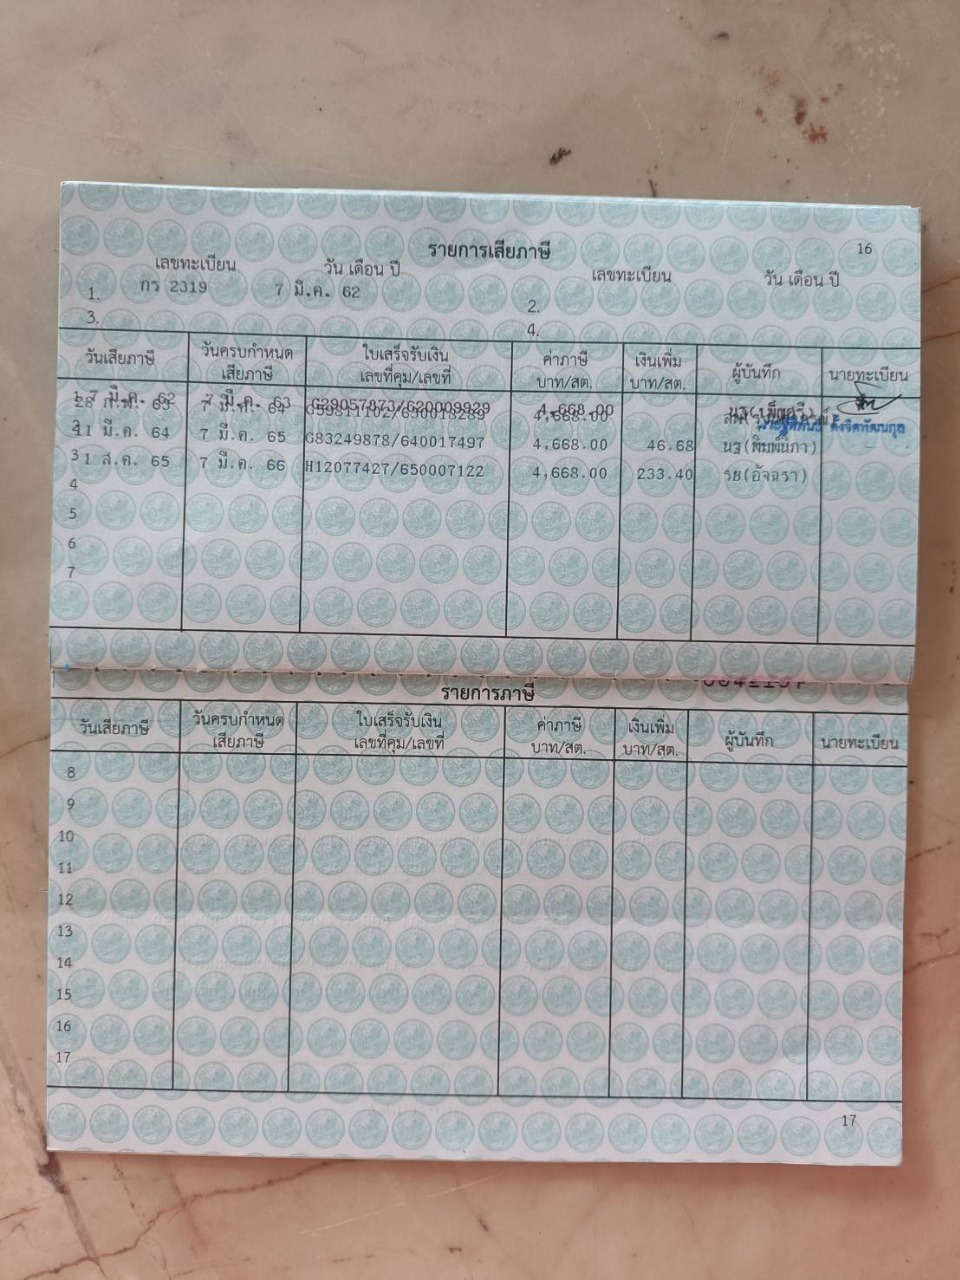 16
รายการเสียภาษี
เลขทะเบียน วัน เดือน ปี เลขทะเบียน วัน เดือน ปี
1. กร 2319 7 มี.ค. 62 2.
3. 4.
วันเสียภาษี วันครบกำหนดเสียภาษี ใบเสร็จรับเงิน เลขที่คุม/เลขที่ ค่าภาษี บาท/สต. เงินเพิ่ม บาท/สต. ผู้บันทึก นายทะเบียน
1 7 มี.ค. 62 7 มี.ค. 63 G29057873/620009929 4,668.00
28 ก.พ. 63 7 มี.ค. 64 4,668.00
2 11 มี.ค. 64 7 มี.ค. 65 G83249878/640017497 4,668.00 46.68 นฐ(พิมพ์นภา)
3 1 ส.ค. 65 7 มี.ค. 66 H12077427/650007122 4,668.00 233.40 รย(อัจฉรา)
4
5
6
7
รายการภาษี
วันเสียภาษี วันครบกำหนดเสียภาษี ใบเสร็จรับเงิน เลขที่คุม/เลขที่ ค่าภาษี บาท/สต. เงินเพิ่ม บาท/สต. ผู้บันทึก นายทะเบียน
8
9
10
11
12
13
14
15
16
17
17